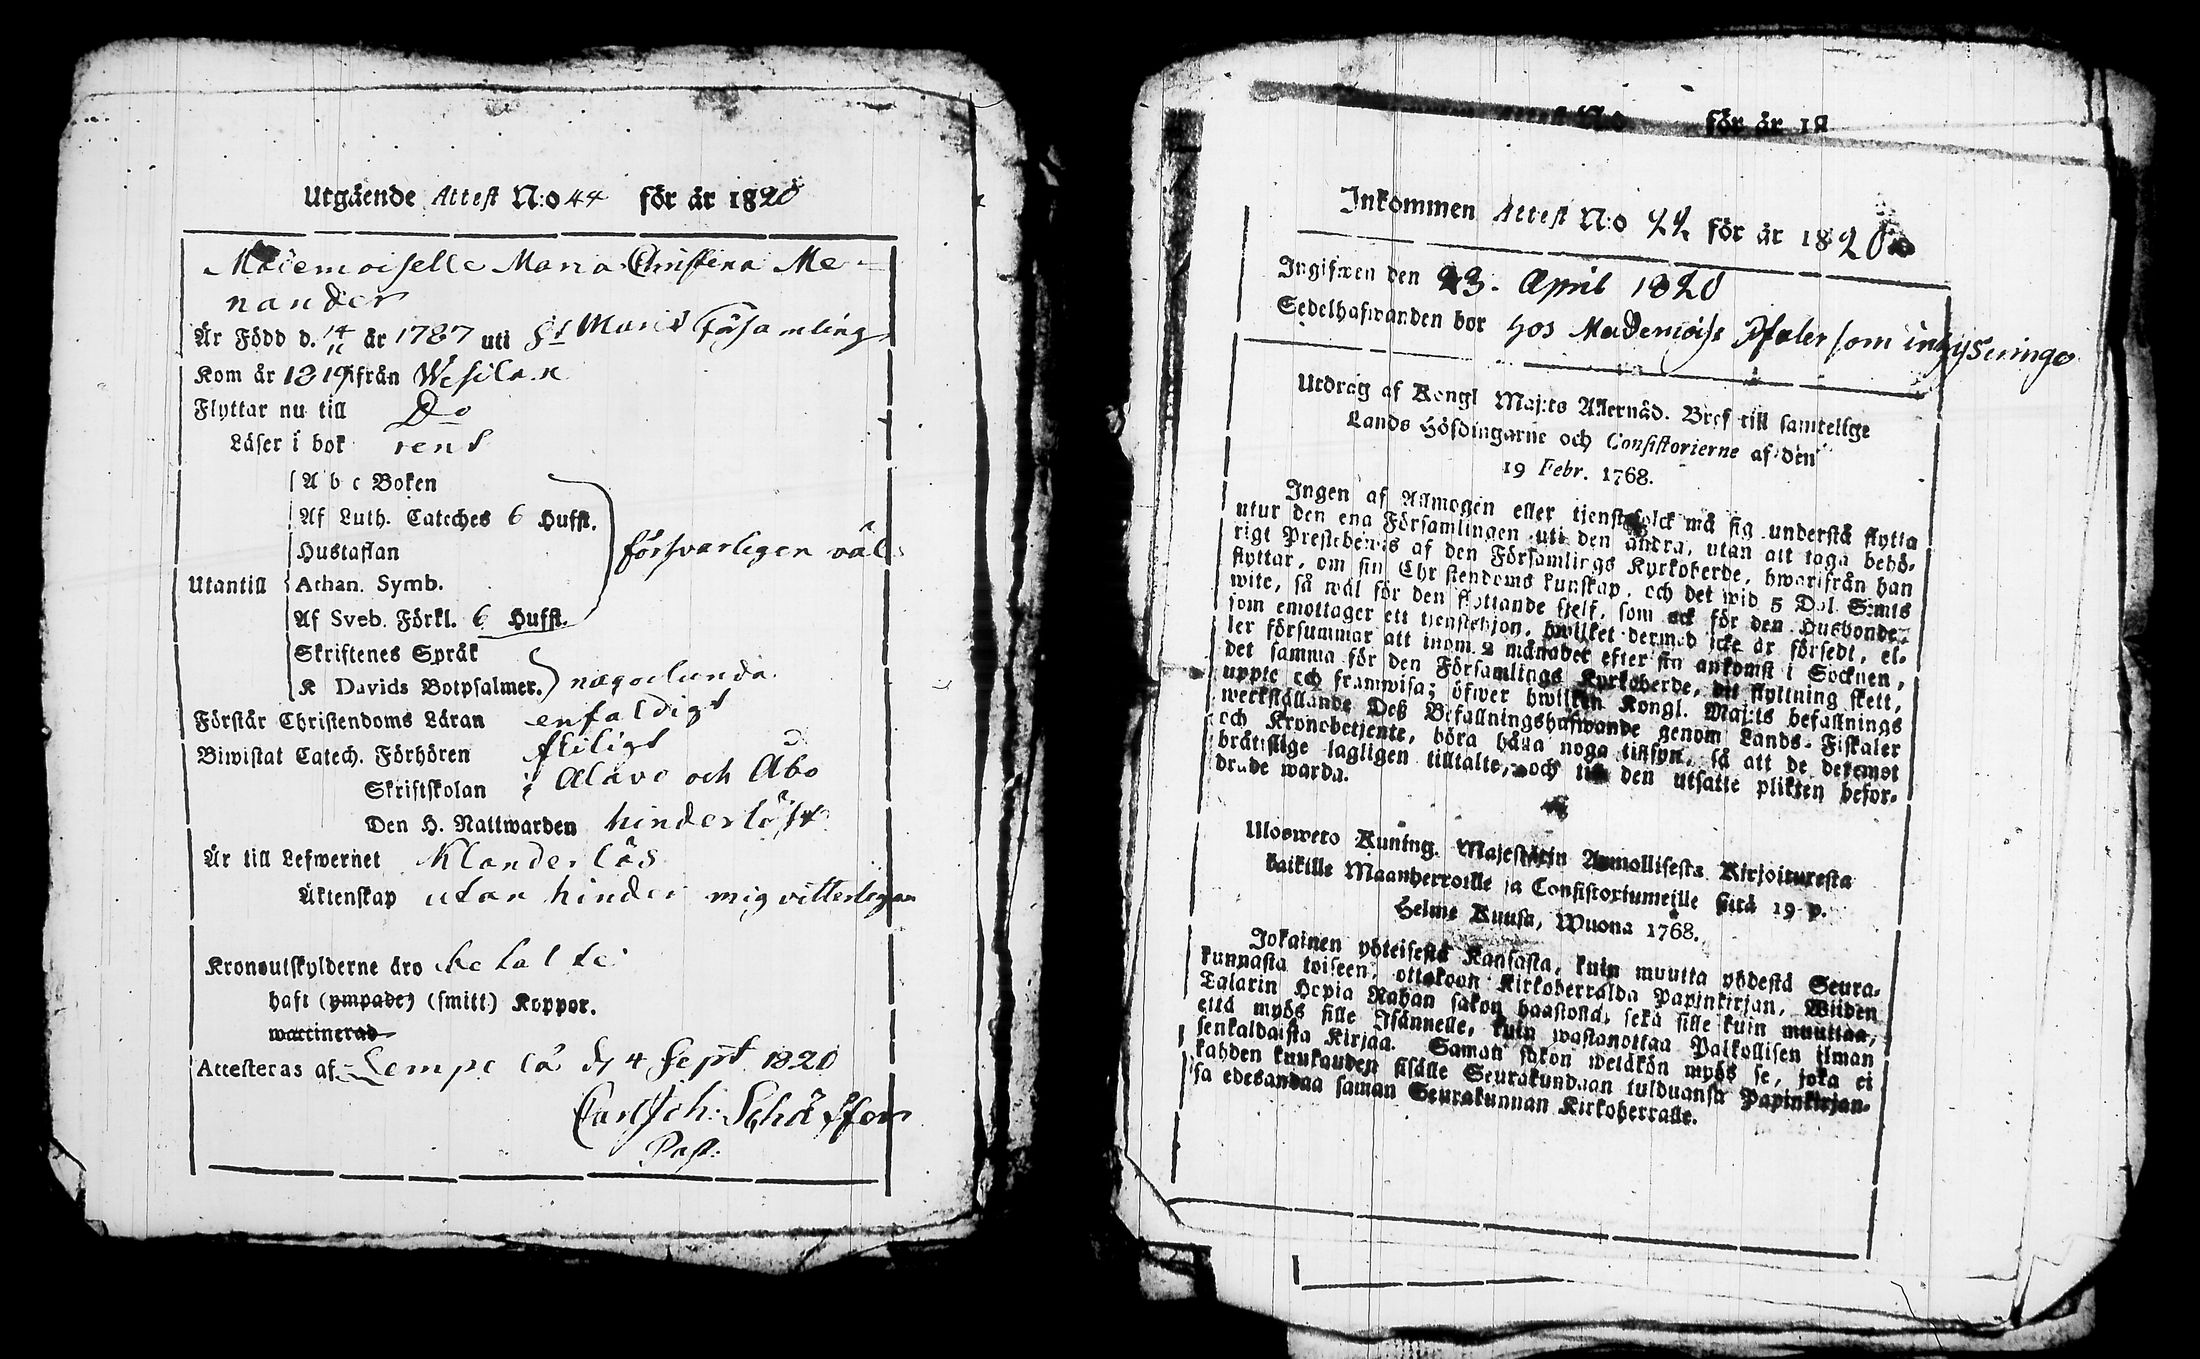 Utgående Attest N:o 44 för år 1820
Mademoiselle Maria Christina Me-
nander
Är Född d. 14/11 år 1787 uti St Marie Församling
Kom år 1819 ifrån Wesilax
Flyttar nu till Do
Läser i bok rent
A b c Boken
Af Luth. Cateches 6 Hufst.
Hustaflan
försvarligen väl
Utantill Athan. Symb.
Af Sveb. Förkl. 6 Hufst.
Skriftenes Språk
K Davids Botpsalmer. någorlunda
Förstår Christendoms Läran enfaldigt
Biwistat Catech. Förhören fliitigt
Skriftskolan i Alavo och Åbo
Den H. Nattwarden hinderlöst
Är till Lefwernet Klanderlös
Äktenskap utan hinder mig vitterligen
Kronoutskylderne äro betalte
haft (ympade) (smitt) Koppor.
waccinerad
Attesteras af Lempelä d 4 Sept 1820
Carl Joh: Schäffer
Past:
Attest N:o för år 18
Inkommen Attest N:o 22 för år 1820
Ingifwen den 23. April 1820
Sedelhafwanden bor hos Mademoise Pfaler som inhysninge
Utdrag af Kongl Maj:ts Allernåd. Bref till samtelige
Lands Höfdingarne och Consistorierne af den
19 Febr. 1768.
Ingen af Allmogen eller tjenstefolck må sig understå flytta
utur den ena Församlingen uti den andra, utan att taga behö-
rigt Prestebewis af den Församlings Kyrkoherde, hwarifrån han
flyttar, om sin Christendoms kunskap, och det wid 5 Dal. S:mts
wite, så wäl för den flyttande sielf, som ock för den Husbonde,
som emottager ett tjenstehjon, hwilket dermed icke är försedt, el-
ler försummar att inom 2 månader efter sin ankomst i Socknen,
det samma för den Församlings Kyrkoherde, dit flyttning skett,
uppte och framwisa; öfwer hwilken Kongl. Maj:ts befallnings
werkställande Deß Befallningshafwande genom Lands-Fiskaler
och Kronobetjente, böra hålla noga tillsyn, så att de deremot
bråtislige lagligen tilltalte, och till den utsatte plikten befor-
drade warda.
Uloswето Kuning. Majestetin Armollisesta Kirjoituresta
kaikille Maanherroille ja Consistoriumeille siitä 19 p.
Helme Kuusa, Wuona 1768.
Jokainen yhteisestä Kansasta, kuin muutta yhdestä Seura-
kunnasta toiseen, ottakoon Kirkoherralda Papinkirjan, Wiiden
Talarin Hopia Rahan sakon haastolla, sekä sille kuin muuttaa,
että myös sille Isännelle, kuin wastanottaa Palkollisen ilman
senkaldaista Kirjaa. Saman sakon wetäkön myös se, joka ei
kahden kuukauden sisälle Seurakundaan tulduansa Papinkirjan-
sa edesandaa saman Seurakunnan Kirkoherralle.